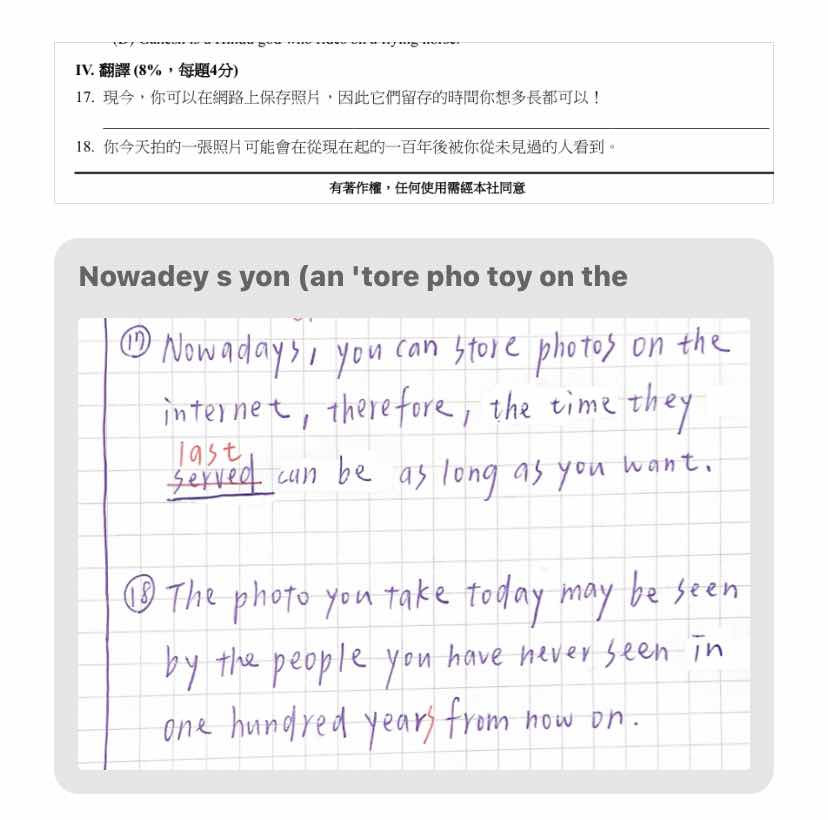 IV. 翻譯 (8%,每題4分)
17. 現今,你可以在網路上保存照片,因此它們留存的時間你想多長都可以!
18. 你今天拍的一張照片可能會在從現在起的一百年後被你從未見過的人看到。
有著作權,任何使用需經本社同意
Nowadey s yon (an 'tore pho toy on the
⑰ Nowadays, you can store photos on the
internet, therefore, the time they
last
served can be as long as you want.
⑱ The photo you take today may be seen
by the people you have never seen in
one hundred years from now on.